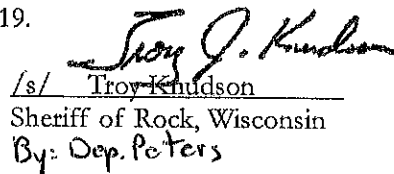 19.
Troy J. Knudson
/s/ Troy Knudson
Sheriff of Rock, Wisconsin
By: Dep. Peters